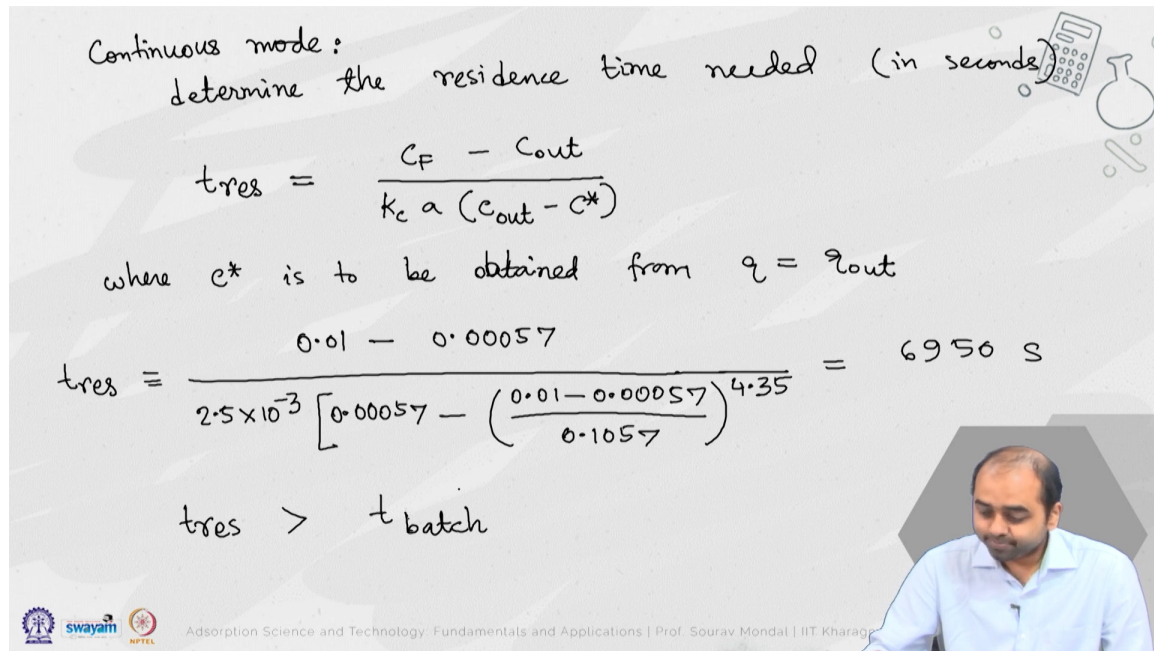 Continuous mode:
determine the residence time needed (in seconds)
tres = (CF - Cout) / (Kc a (Cout - C*))
where c* is to be obtained from q = qout
tres = (0.01 - 0.00057) / (2.5×10^-3 [0.00057 - ((0.01-0.00057)/0.1057)^4.35]) = 6950 s
tres > t batch
swayam
NPTEL
Adsorption Science and Technology: Fundamentals and Applications | Prof. Sourav Mondal | IIT